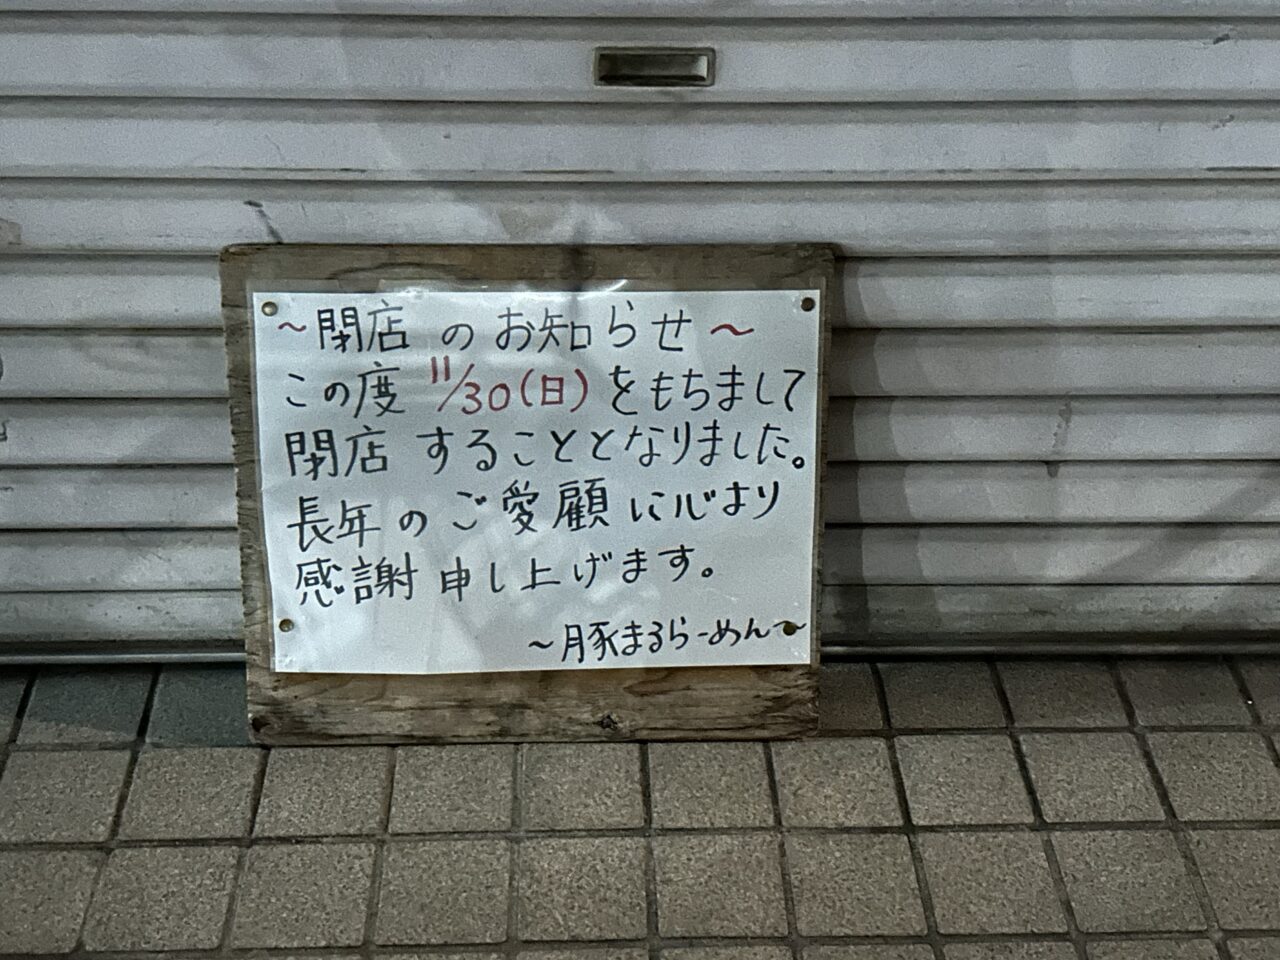 ～閉店のお知らせ～
この度 11/30(日)をもちまして
閉店することとなりました。
長年のご愛顧に心より
感謝申し上げます。
～豚まるらーめん～